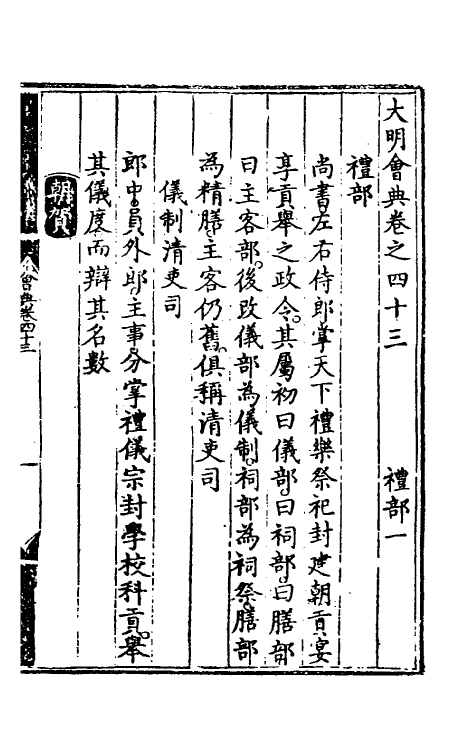 大明會典卷之四十三　禮部一
禮部
尚書左右侍郎掌天下禮樂祭祀封建朝貢宴
享貢舉之政令。其屬初曰儀部。曰祠部。曰膳部
曰主客部。後改儀部為儀制。祠部為祠祭。膳部
為精膳。主客仍舊。俱稱清吏司
儀制清吏司
郎中。員外郎。主事。分掌禮儀宗封學校科貢。舉
其儀度而辯其名數
朝賀
會典卷四十三
一